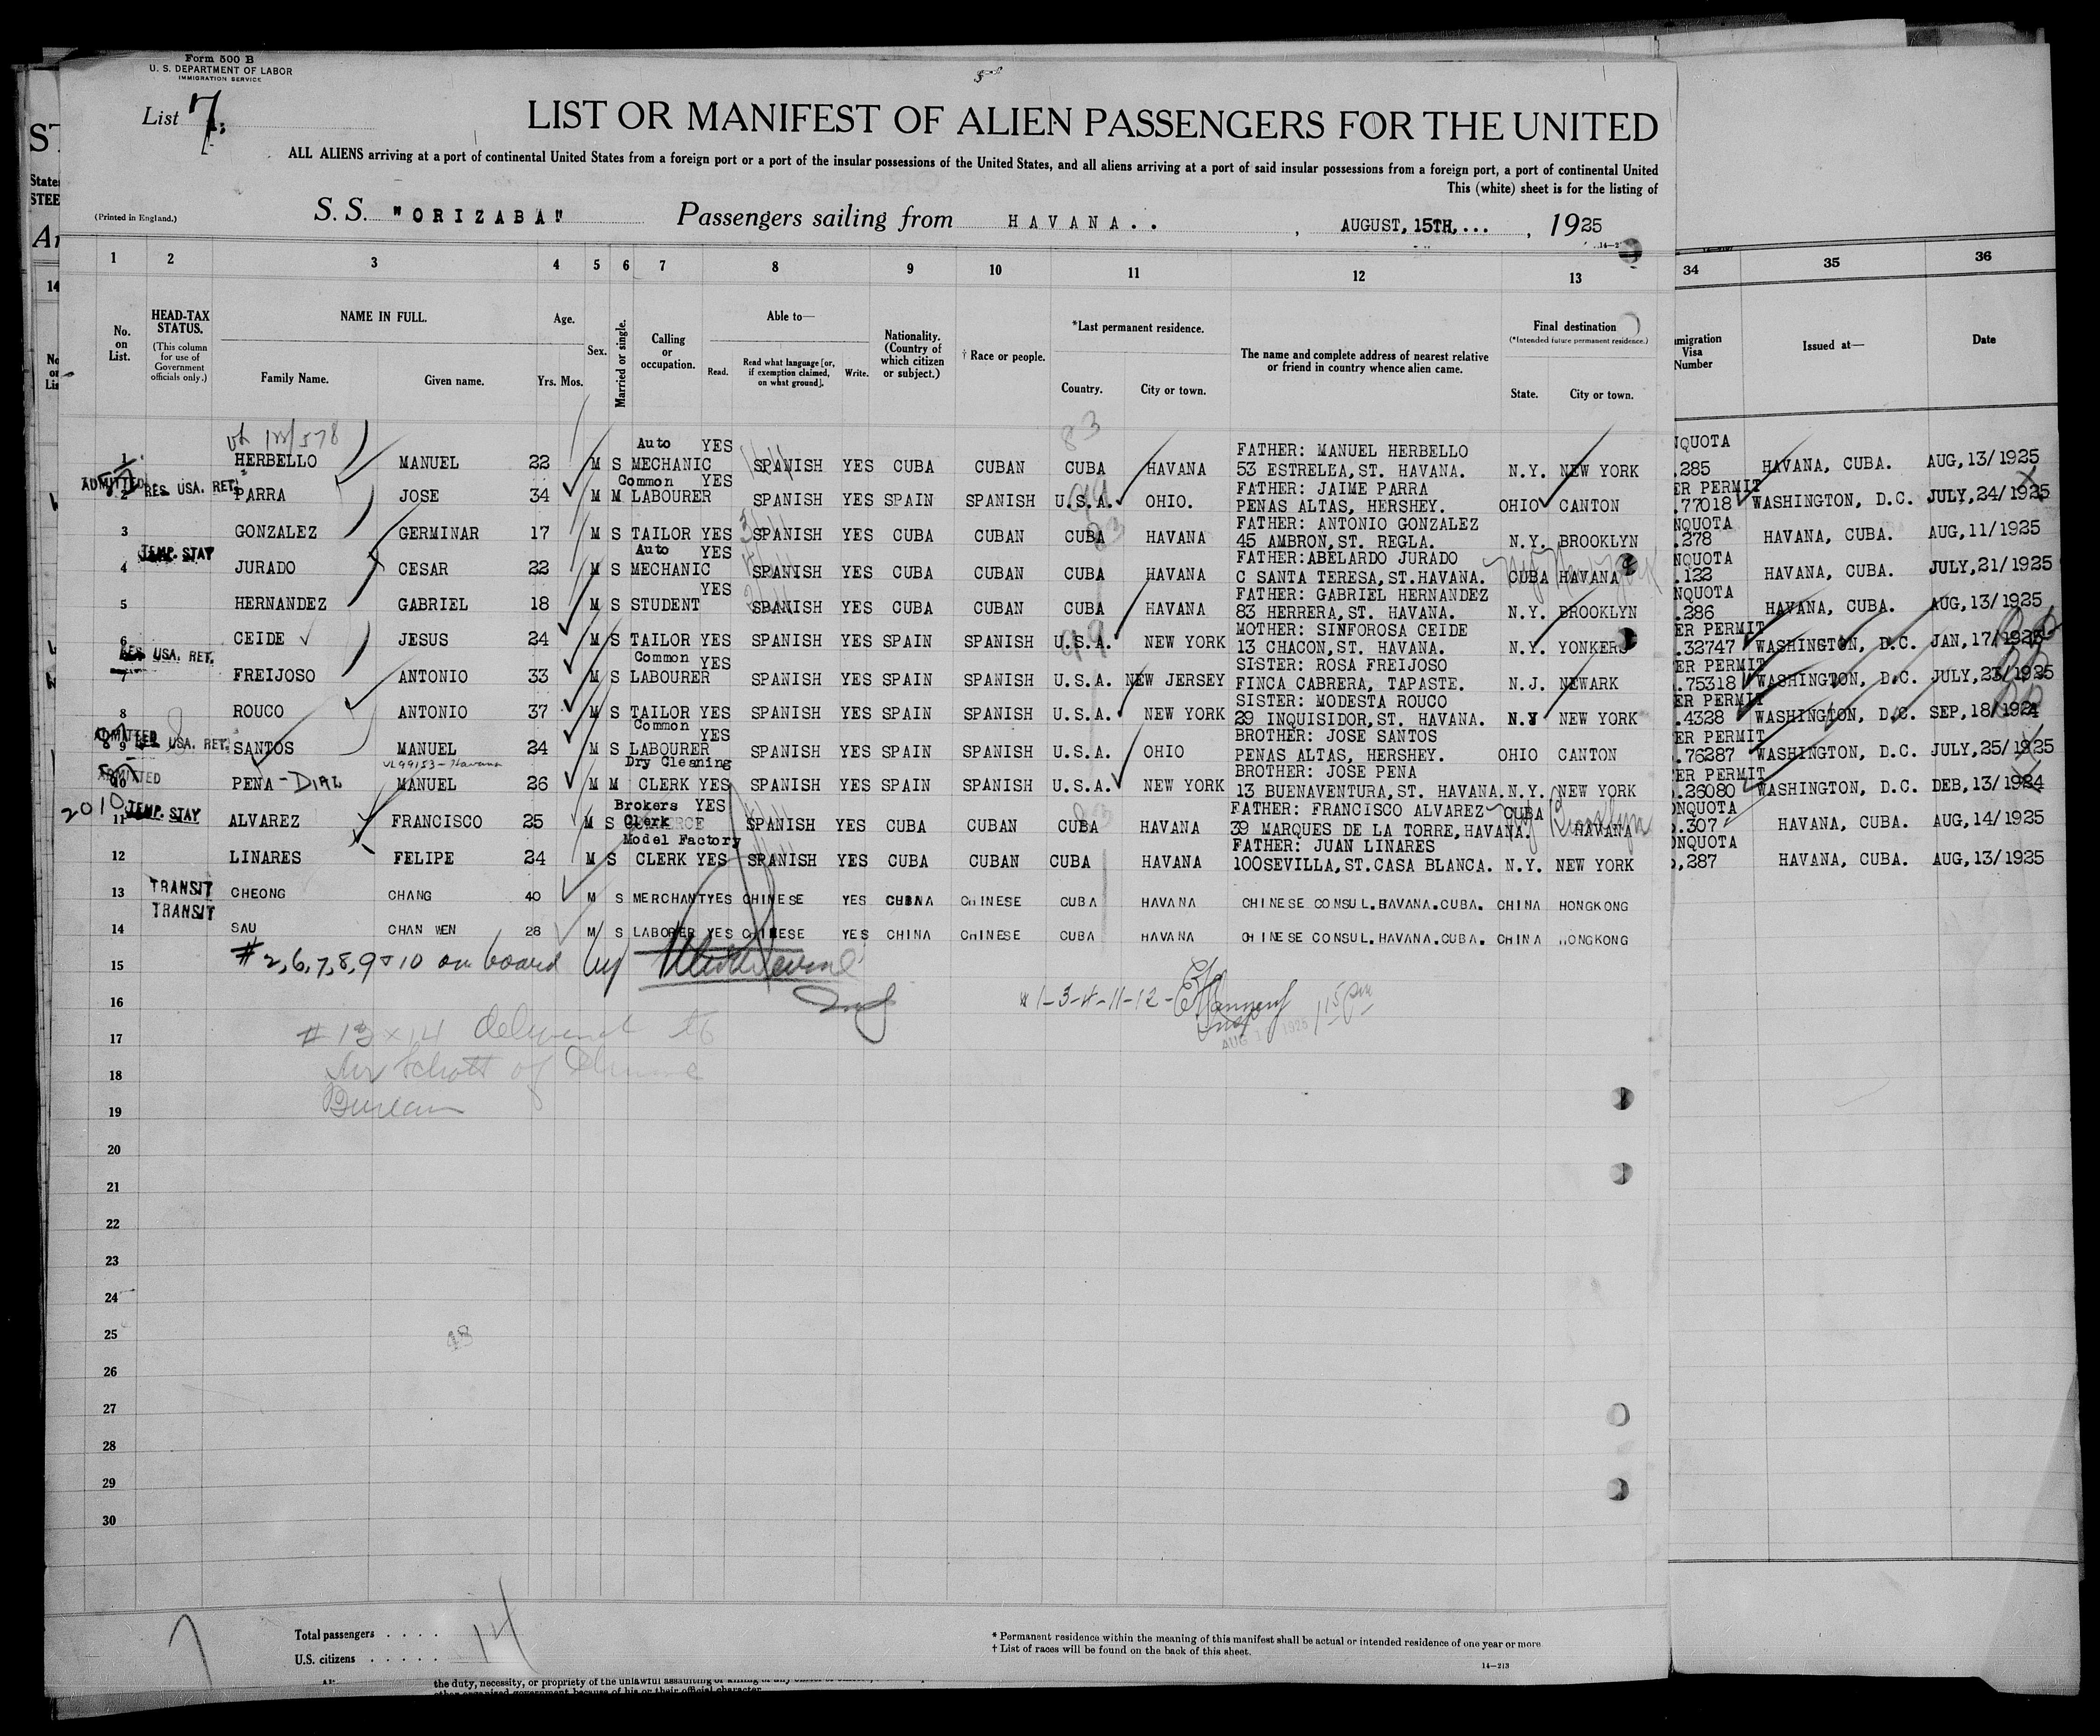 Form 500 B
U. S. DEPARTMENT OF LABOR
IMMIGRATION SERVICE
List 7.
LIST OR MANIFEST OF ALIEN PASSENGERS FOR THE UNITED
ALL ALIENS arriving at a port of continental United States from a foreign port or a port of the insular possessions of the United States, and all aliens arriving at a port of said insular possessions from a foreign port, a port of continental United
This (white) sheet is for the listing of
(Printed in England.)
S. S. "ORIZABA" Passengers sailing from HAVANA.. , AUGUST, 15TH,... , 1925
1 2 3 4 5 6 7 8 9 10 11 12 13 34 35 36
No. on List.
HEAD-TAX STATUS. (This column for use of Government officials only.)
NAME IN FULL.
Family Name. Given name.
Age. Yrs. Mos.
Sex.
Married or single.
Calling or occupation.
Able to—
Read. Read what language [or, if exemption claimed, on what ground]. Write.
Nationality. (Country of which citizen or subject.)
† Race or people.
*Last permanent residence.
Country. City or town.
The name and complete address of nearest relative or friend in country whence alien came.
Final destination
(*Intended future permanent residence.)
State. City or town.
migration Visa Number
Issued at—
Date
1 HERBELLO MANUEL 22 M S Auto MECHANIC YES SPANISH YES CUBA CUBAN CUBA HAVANA FATHER: MANUEL HERBELLO 53 ESTRELEA,ST. HAVANA. N.Y. NEW YORK NQUOTA .285 HAVANA, CUBA. AUG,13/1925
ADMITTED 2 RES USA. RET. PARRA JOSE 34 M M Common LABOURER YES SPANISH YES SPAIN SPANISH U.S.A. OHIO. FATHER: JAIME PARRA PENAS ALTAS, HERSHEY. OHIO CANTON ER PERMIT .77018 WASHINGTON, D.C. JULY,24/1925
3 GONZALEZ GERMINAR 17 M S TAILOR YES SPANISH YES CUBA CUBAN CUBA HAVANA FATHER: ANTONIO GONZALEZ 45 AMBRON,ST. REGLA. N.Y. BROOKLYN NQUOTA .278 HAVANA, CUBA. AUG,11/1925
TEMP. STAY
4 JURADO CESAR 22 M S Auto MECHANIC YES SPANISH YES CUBA CUBAN CUBA HAVANA FATHER:ABELARDO JURADO C SANTA TERESA,ST.HAVANA. CUBA HAVANA NQUOTA .122 HAVANA, CUBA. JULY,21/1925
5 HERNANDEZ GABRIEL 18 M S STUDENT YES SPANISH YES CUBA CUBAN CUBA HAVANA FATHER: GABRIEL HERNANDEZ 83 HERRERA,ST. HAVANA. N.Y. BROOKLYN NQUOTA .286 HAVANA, CUBA. AUG,13/1925
6 CEIDE JESUS 24 M S TAILOR YES SPANISH YES SPAIN SPANISH U.S.A. NEW YORK MOTHER: SINFOROSA CEIDE 13 CHACON,ST. HAVANA. N.Y. YONKERS ER PERMIT .32747 WASHINGTON, D.C. JAN,17/1925
RES USA. RET.
7 FREIJOSO ANTONIO 33 M S Common LABOURER YES SPANISH YES SPAIN SPANISH U.S.A. NEW JERSEY SISTER: ROSA FREIJOSO FINCA CABRERA, TAPASTE. N.J. NEWARK ER PERMIT .75318 WASHINGTON, D.C. JULY,23/1925
8 ROUCO ANTONIO 37 M S TAILOR YES SPANISH YES SPAIN SPANISH U.S.A. NEW YORK SISTER: MODESTA ROUCO 29 INQUISIDOR,ST. HAVANA. N.Y NEW YORK ER PERMIT .4328 WASHINGTON, D.C. SEP,18/1924
ADMITTED 9 RES USA. RET. SANTOS MANUEL 24 M S Common LABOURER YES SPANISH YES SPAIN SPANISH U.S.A. OHIO BROTHER: JOSE SANTOS PENAS ALTAS, HERSHEY. OHIO CANTON ER PERMIT .76287 WASHINGTON, D.C. JULY,25/1925
ADMITTED 10 PENA - DIAZ MANUEL 26 M M Dry Cleaning CLERK YES SPANISH YES SPAIN SPANISH U.S.A. NEW YORK BROTHER: JOSE PENA 13 BUENAVENTURA,ST. HAVANA. N.Y. NEW YORK ER PERMIT .26080 WASHINGTON, D.C. DEB,13/1924
2010 TEMP. STAY
11 ALVAREZ FRANCISCO 25 M S Brokers Clerk YES SPANISH YES CUBA CUBAN CUBA HAVANA FATHER: FRANCISCO ALVAREZ 39 MARQUES DE LA TORRE,HAVANA. CUBA HAVANA Brooklyn ONQUOTA .307 HAVANA, CUBA. AUG,14/1925
12 LINARES FELIPE 24 M S Model Factory CLERK YES SPANISH YES CUBA CUBAN CUBA HAVANA FATHER: JUAN LINARES 100SEVILLA,ST.CASA BLANCA. N.Y. NEW YORK ONQUOTA ,287 HAVANA, CUBA. AUG,13/1925
13 TRANSIT CHEONG CHANG 40 M S MERCHANT YES CHINESE YES CHINA CHINESE CUBA HAVANA CHINESE CONSUL.HAVANA.CUBA. CHINA HONGKONG
TRANSIT
14 SAU CHAN WEN 28 M S LABORER YES CHINESE YES CHINA CHINESE CUBA HAVANA CHINESE CONSUL.HAVANA.CUBA. CHINA HONGKONG
# 2,6,7,8,9 & 10 on board by
15
16 # 1-3-4-11-12- 115 pm
AUG 1925
17 # 13 x 14 delivered to
18 Mr Schott of Chinese
19 Bureau
20
21
22
23
24
25
48
26
27
28
29
30
Total passengers . . . . 14
U.S. citizens . . . . .
* Permanent residence within the meaning of this manifest shall be actual or intended residence of one year or more
† List of races will be found on the back of this sheet.
14—213
the duty, necessity, or propriety of the unlawful assaulting or killing of any